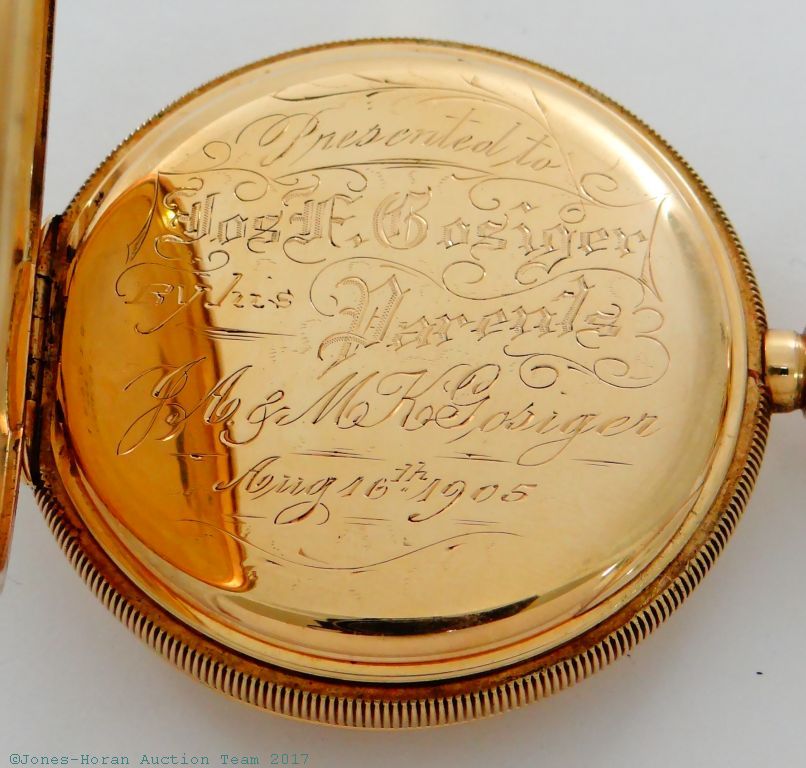 Presented to
Jos F. Gosiger
By his Parents
J. A. & M K Gosiger
Aug 16th 1905
©Jones-Horan Auction Team 2017